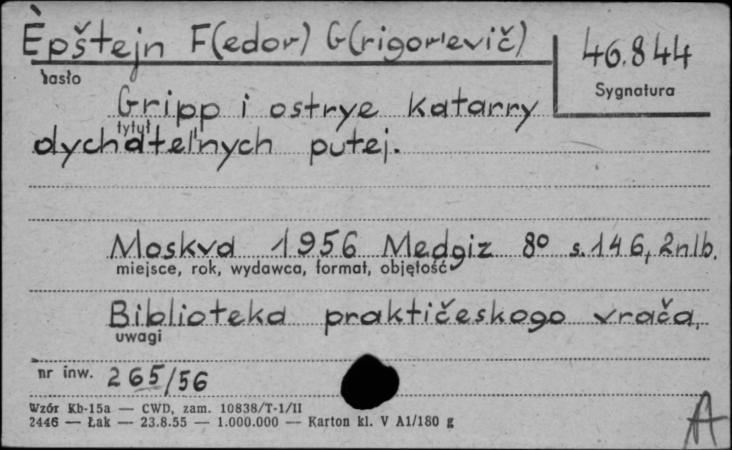 Èpštejn F(edor) G(rigor'evič)
46.844
hasło
Sygnatura
Gripp i ostrye katarry
tytuł
dychatel'nych putej.
Moskva 1956 Medgiz 8° s.146, 2nlb.
miejsce, rok, wydawca, format, objętość
Biblioteka praktičeskogo vrača.
uwagi
nr inw. 265/56
Wzór Kb-15a — CWD, zam. 10838/T-1/II
2446 — Łak — 23.8.55 — 1.000.000 — Karton kl. V A1/180 g
A